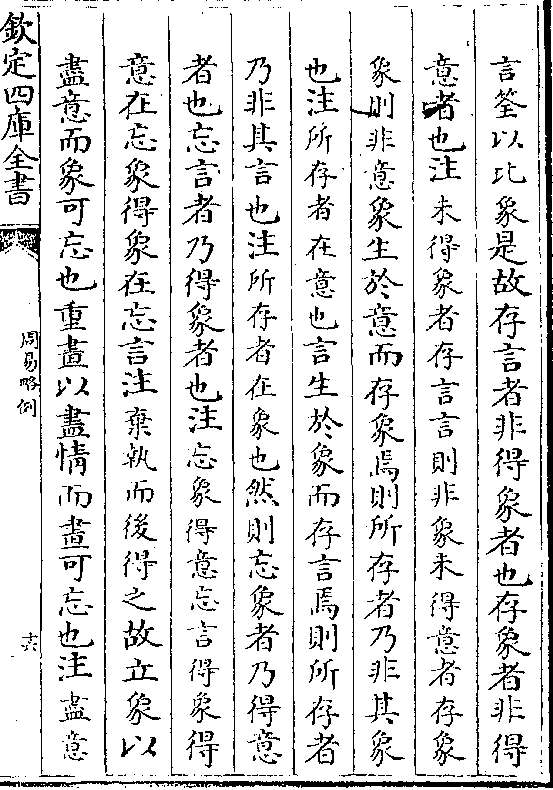 言筌以比象是故存言者非得象者也存象者非得
意者也注未得象者存言言則非象未得意者存象
象則非意象生於意而存象焉則所存者乃非其象
也注所存者在意也言生於象而存言焉則所存者
乃非其言也注所存者在象也然則忘象者乃得意
者也忘言者乃得象者也注忘象得意忘言得象得
意在忘象得象在忘言注棄執而後得之故立象以
盡意而象可忘也重畫以盡情而畫可忘也注盡意
欽定四庫全書
周易略例
十六